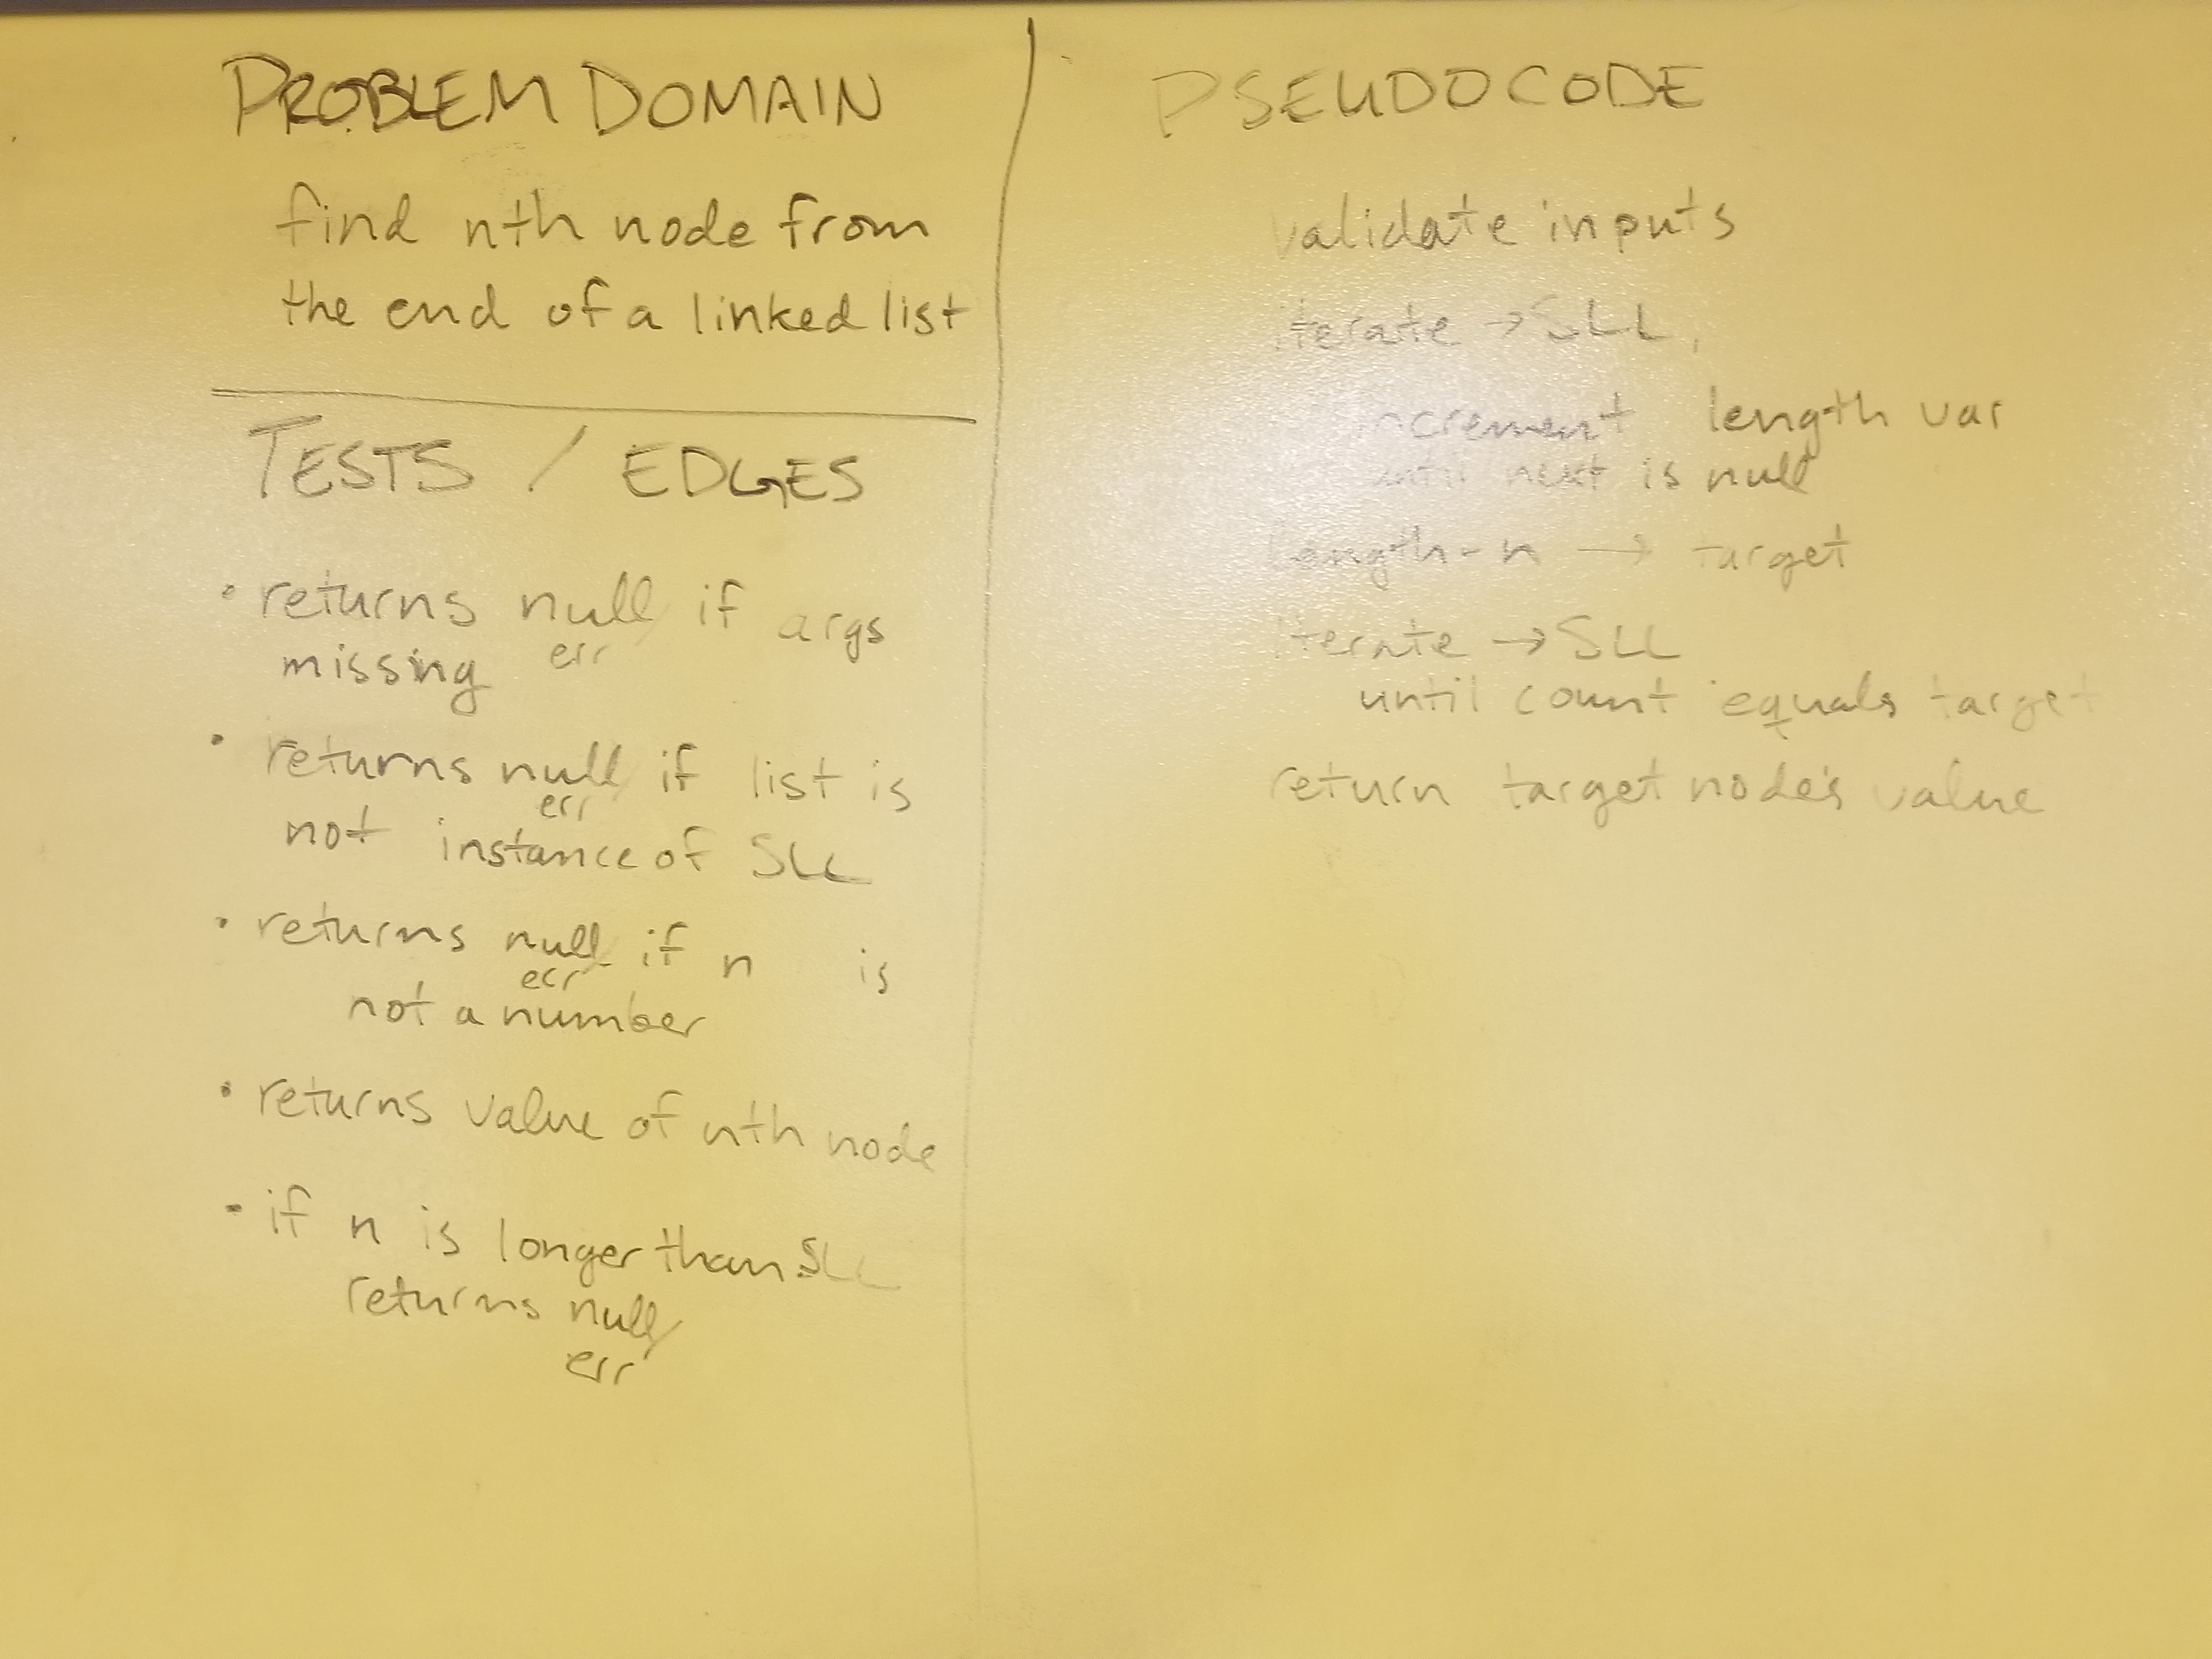 PROBLEM DOMAIN
find nth node from
the end of a linked list
TESTS / EDGES
• returns null/ if args
err
missing
• returns null/ if list is
err
not instance of SLL
• returns null/ if n is
err
not a number
• returns value of nth node
• if n is longer than SLL
returns null/
err
PSEUDOCODE
validate inputs
iterate → SLL,
increment length var
until next is null
length - n → target
iterate → SLL
until count equals target
return target node's value